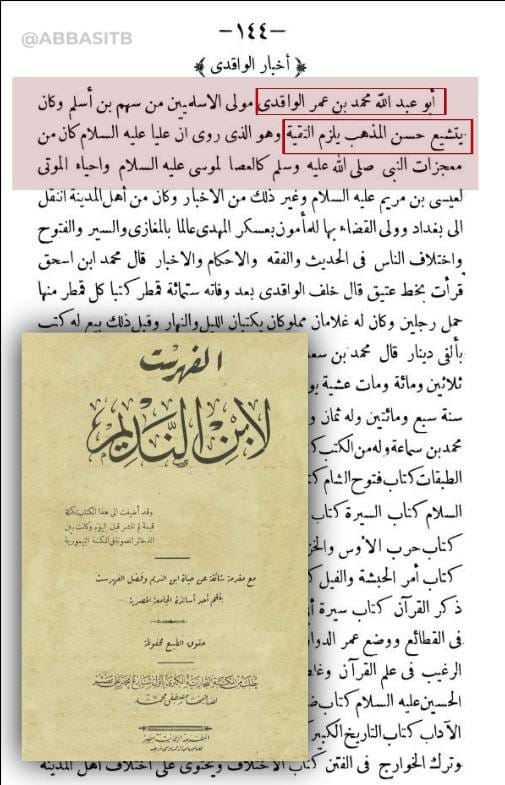 @ABBASITB
-١٤٤-
﴿ أخبار الواقدى ﴾
أبو عبد الله محمد بن عمر الواقدى مولى الاسلميين من سهم بن أسلم وكان
يتشيع حسن المذهب يلزم التقية وهو الذى روى ان عليا عليه السلام كان من
معجزات النبى صلى الله عليه وسلم كالعصا لموسى عليه السلام واحياء الموتى
لعيسى بن مريم عليه السلام وغير ذلك من الاخبار وكان من أهل المدينة انتقل
الى بغداد وولى القضاء بها للمأمون بعسكر المهدى عالما بالمغازى والسير والفتوح
واختلاف الناس فى الحديث والفقه والاحكام والاخبار قال محمد ابن اسحق
قرأت بخط عتيق قال خلف الواقدى بعد وفاته ستمائة قمطر كتبا كل قمطر منها
حمل رجلين وكان له غلامان مملوكان يكتبان الليل والنهار وقبل ذلك بيع له كتب
بألفى دينار قال محمد بن سعد
ثلاثين ومائة ومات عشية
سنة سبع ومائتين وله ثمان
محمد بن سماعة وله من الكتب
الطبقات كتاب فتوح الشام
السلام كتاب السيرة كتاب
كتاب حرب الاوس والخز
كتاب أمر الحبشة والفيل
ذكر القرآن كتاب سيرة أ
فى القطائع ووضع عمر الدوا
الرغيب فى علم القرآن وغلط
الحسين عليه السلام كتاب
الآداب كتاب التاريخ الكبير
وترك الخوارج فى الفتن كتاب الاختلاف ويحتوى على اختلاف أهل المدينة
الفهرست
لابن النديم
وقد أضيفت الى هذا الكتاب تكملة
قيمة لم تنشر قبل اليوم وكانت بين
الذخائر المصونة فى المكتبة التيمورية
مع مقدمة شائقة عن حياة ابن النديم وفضل الفهرست
بقلم أحد أساتذة الجامعة المصرية
حقوق الطبع محفوظة
يطلب من المكتبة التجارية الكبرى بأول شارع محمد على بمصر
لصاحبها مصطفى محمد
المطبعة الرحمانية بمصر